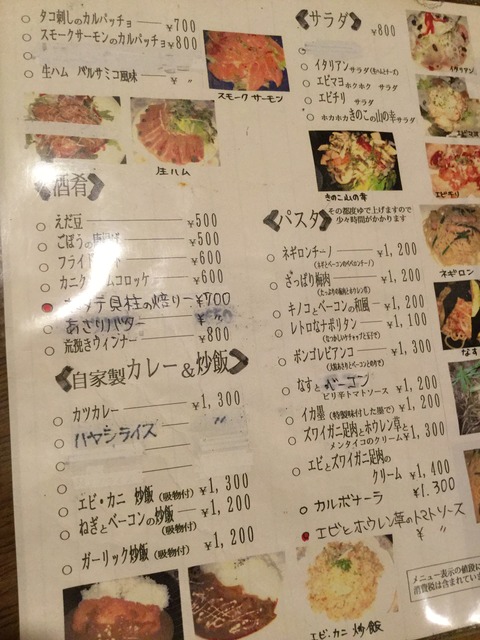 タコ刺しのカルパッチョ ¥700
スモークサーモンのカルパッチョ ¥800
生ハム バルサミコ風味 ¥ 〃
スモーク サーモン
生ハム
《酒肴》
えだ豆 ¥500
ごぼうの ¥500
フライド ¥600
カニク コロッケ ¥600
貝柱の焙り ¥700
あさりバター ¥ 〃
荒挽きウィンナー ¥800
《自家製カレー&炒飯》
カツカレー ¥1,300
ハヤシライス 〃
エビ・カニ 炒飯 (吸物付) ¥1,300
ねぎとベーコンの炒飯 (吸物付) ¥1,200
ガーリック炒飯 (吸物付) ¥1,200
《サラダ》
¥800
イタリアン サラダ (生ハムとチーズ)
エビマヨ ホクホク サラダ
エビチリ サラダ
ホカホカきのこの山の幸サラダ
きのこ山の幸
イタリアン
エビマヨ
エビチリ
《パスタ》
その都度ゆで上げますので
少々時間がかかります
ネギロンチーノ ¥1,200
(ネギとベーコンのペペロンチーノ)
さっぱり梅肉 ¥1,200
(たっぷりの梅肉とホウレン草)
キノコとベーコンの和風 ¥1,200
レトロなナポリタン ¥1,100
(なつかしいケチャップと玉子で)
ボンゴレビアンコ ¥1,300
なすとベーコン
ピリ辛トマトソース ¥1,200
イカ墨 (特製味付した墨で) ¥1,200
ズワイガニ足肉とホウレン草と
メンタイコのクリーム ¥1,300
エビとズワイガニ足肉の
クリーム ¥1,400
カルボナーラ ¥1.300
エビとホウレン草のトマトソース
¥ 〃
ネギロン
なす
エビ・カニ 炒飯
メニュー表示の値段に
消費税は含まれていま